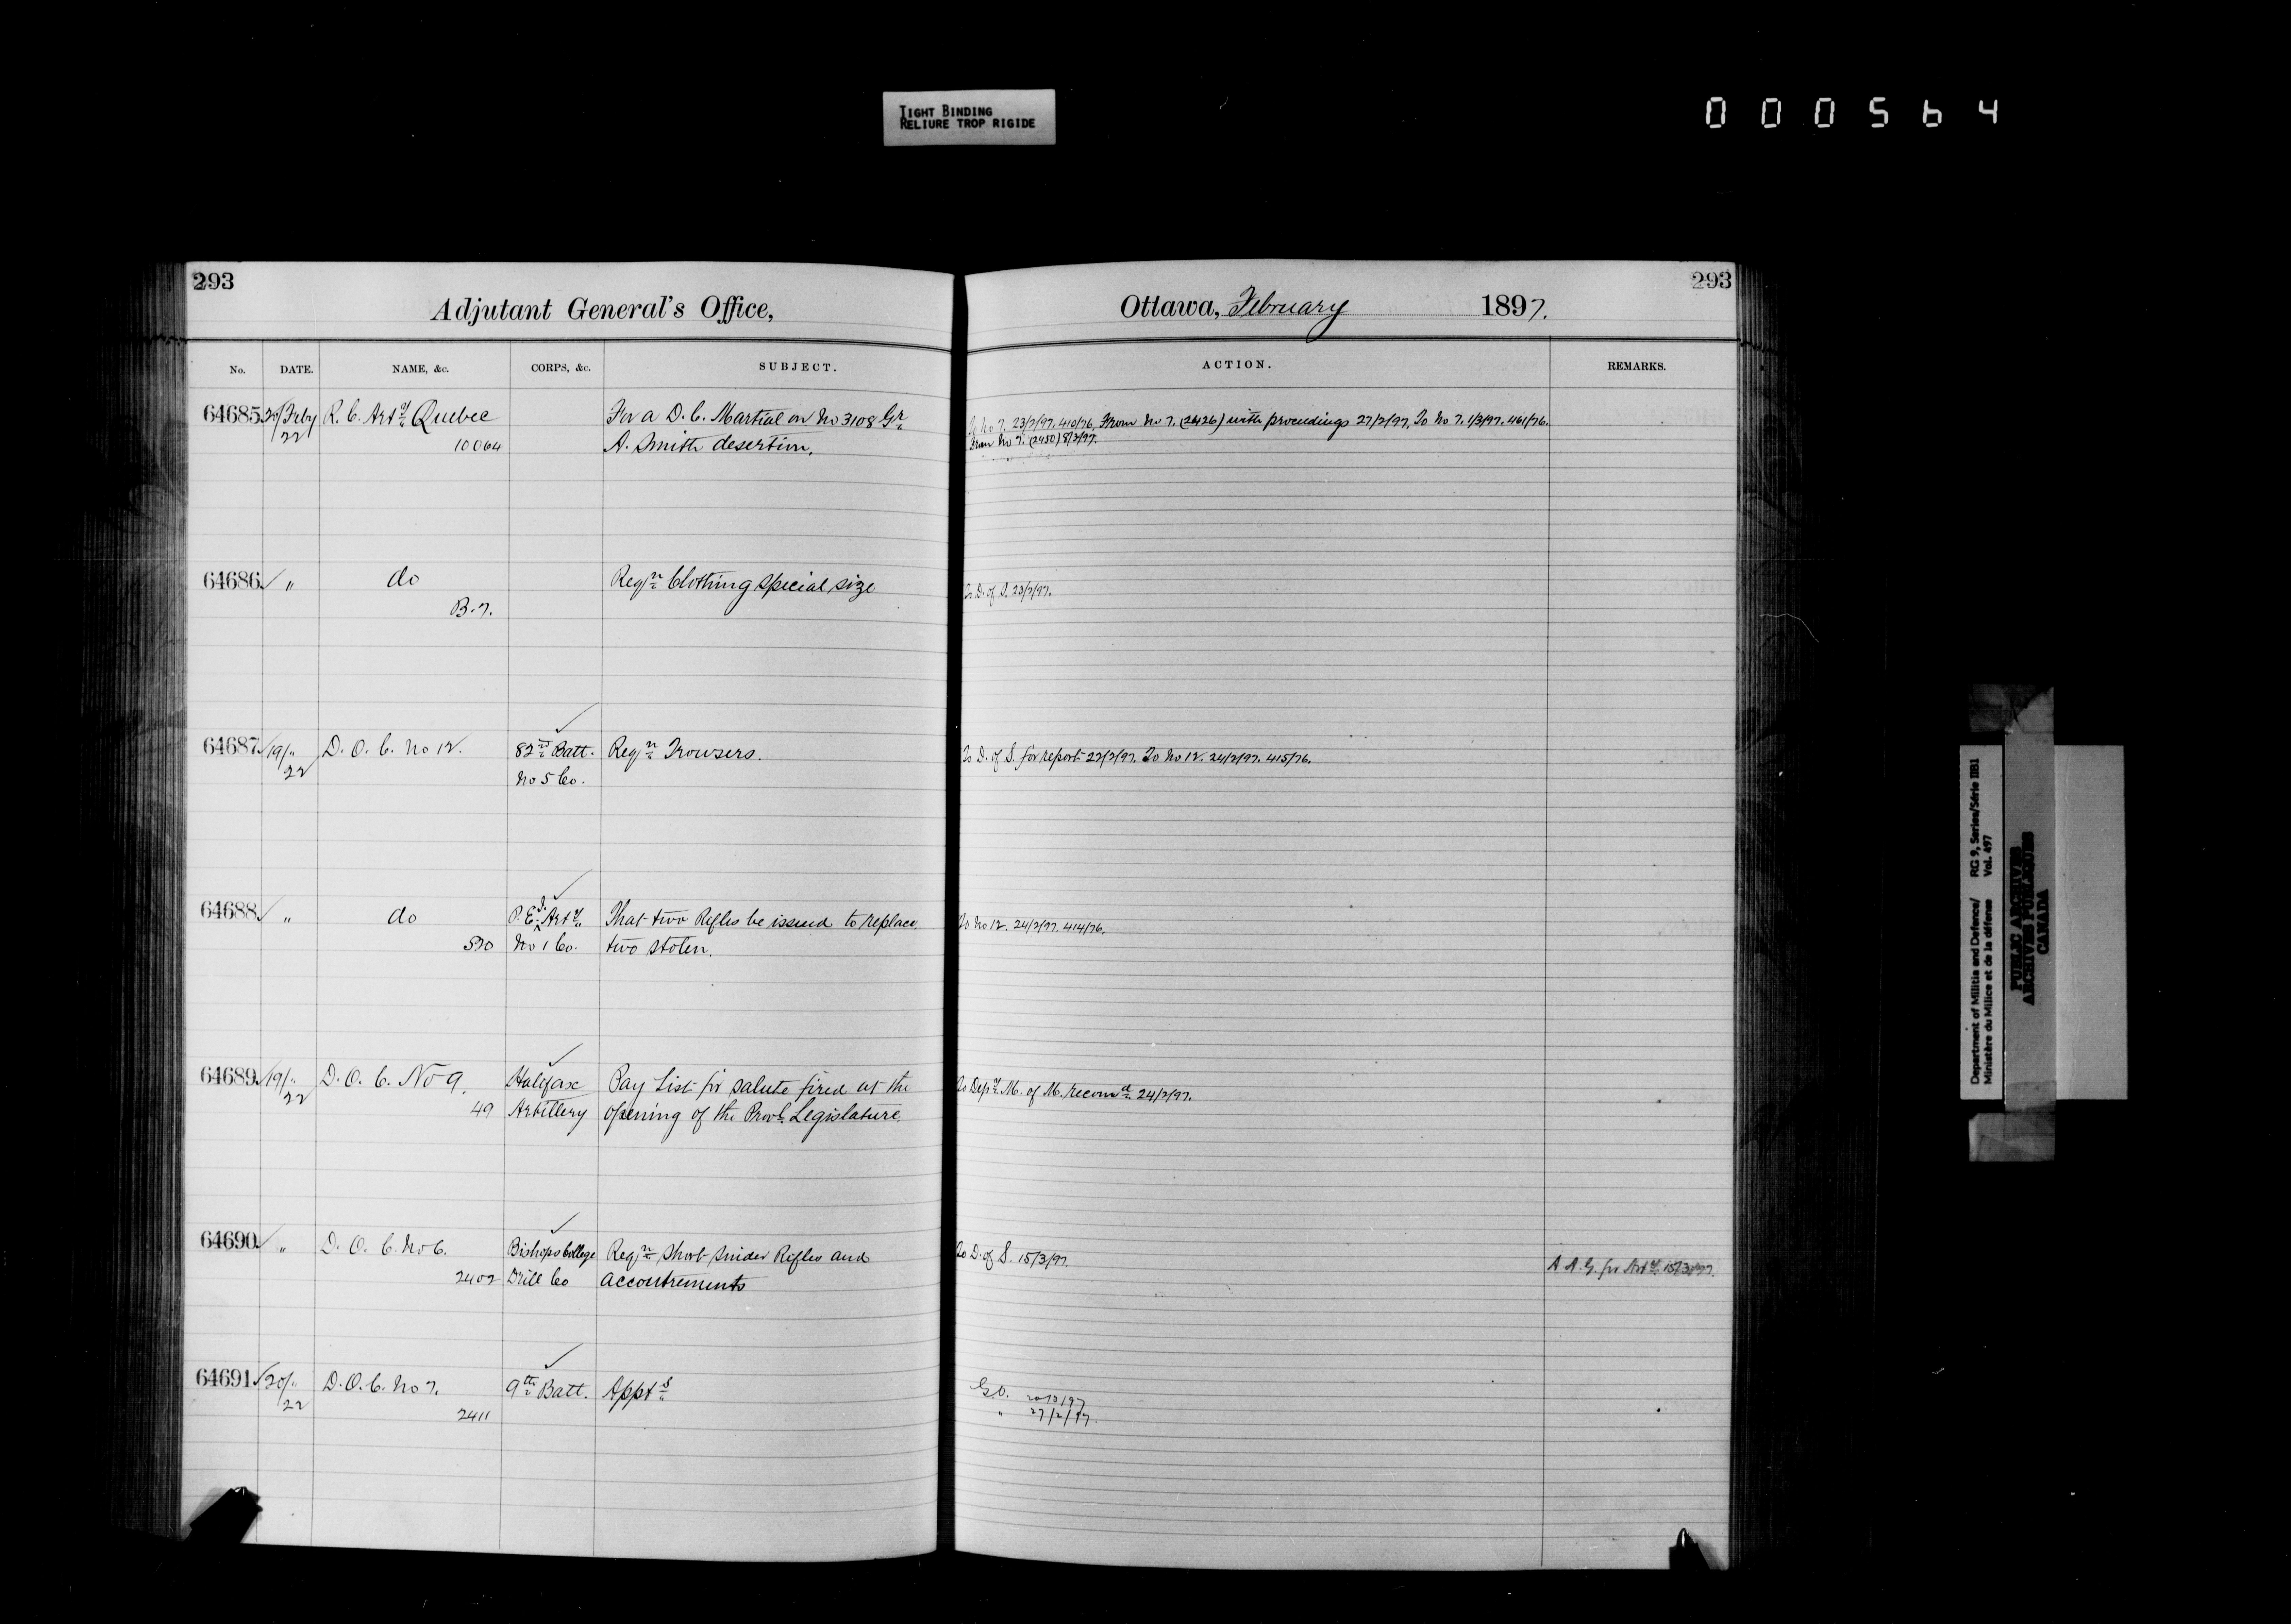 TIGHT BINDING
RELIURE TROP RIGIDE
000564
293
Adjutant General's Office,
No. DATE. NAME, &c. CORPS, &c. SUBJECT.
64685 20/Feby R. C. Arty Quebec For a D. C. Martial on No 3108 Gr
22 10064 A. Smith desertion.
64686 " do Reqn Clothing special size
B.7.
64687 19/" D. O. C. No 12. 82nd Batt. Reqn Trowsers.
22 No 5 Co.
64688 " do P. E. I. Arty That two Rifles be issued to replace
570 No 1 Co. two stolen.
64689 19/" D. O. C. No 9. Halifax Pay List for salute fired at the
22 49 Artillery opening of the Provl Legislature.
64690 " D. O. C. No 6. Bishops College Reqn Short Snider Rifles and
2402 Drill Co accoutrements
64691 20/" D. O. C. No 7. 9th Batt. Appts
22 2411
293
Ottawa, February 1897.
ACTION. REMARKS.
To No 7. 23/2/97. 410/76. From No 7. (2426) with proceedings 27/2/97. To No 7. 1/3/97. 461/76.
From No 7. (2450) 8/3/97.
To D. of S. 23/2/97.
To D. of S. for report 22/2/97. To No 12. 24/2/97. 415/76.
To No 12. 24/2/97. 414/76.
To Depy M. of M. recomd 24/2/97.
To D. of S. 15/3/97. A. A. G. for Arty 15/3/97.
G.O.
" 27/2/97.
Department of Militia and Defence/ RG 9, Series/Série IIB1
Ministère du Milice et de la défense Vol. 497
PUBLIC ARCHIVES
ARCHIVES PUBLIQUES
CANADA